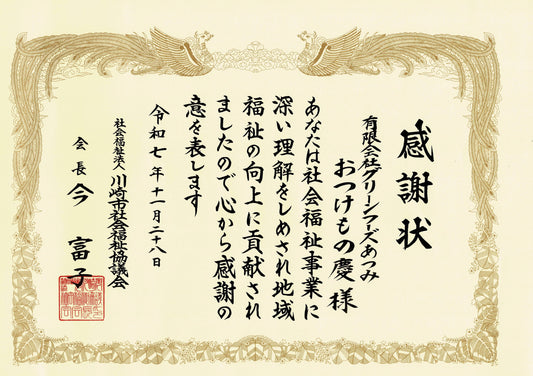 感謝状
有限会社グリーンフーズあつみ
おつけもの慶 様
あなたは社会福祉事業に
深い理解をしめされ地域
福祉の向上に貢献され
ましたので心から感謝の
意を表します
令和七年十一月二十八日
社会福祉法人 川崎市社会福祉協議会
会長 今 富子